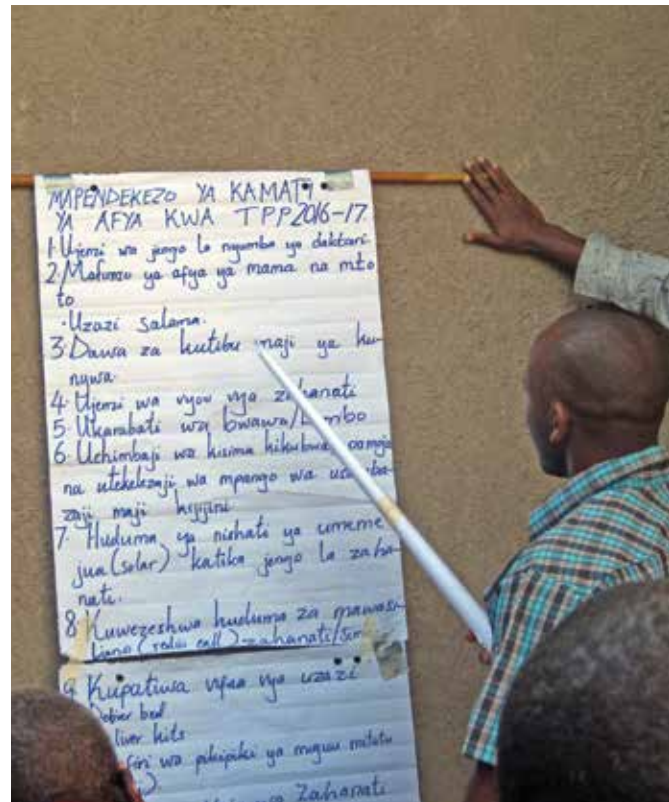 MAPENDEKEZO YA KAMATI
YA AFYA KWA TPP 2016-17
1. Ujenzi wa jengo la nyumba ya daktari.
2. Mafunzo ya afya ya mama na mto
to
· Uzazi salama.
3. Dawa za kutibu maji ya ku-
nywa.
4. Ujenzi wa vyoo vya zahanati
5. Ukarabati wa bwawa/
6. Uchimbaji wa kisima kikubwa pamoja
na utekelezaji wa mpango wa
zaji maji kijijini
7. Huduma ya nishati ya umeme
jua (solar) katika jengo la zaha-
nati.
8. Kuwezeshwa huduma za mawasi-
liano (radio call) - zahanati/
9. Kupatiwa vifaa vya uzazi
bed
kits
wa pikipiki ya miguu mitatu
Zahanati